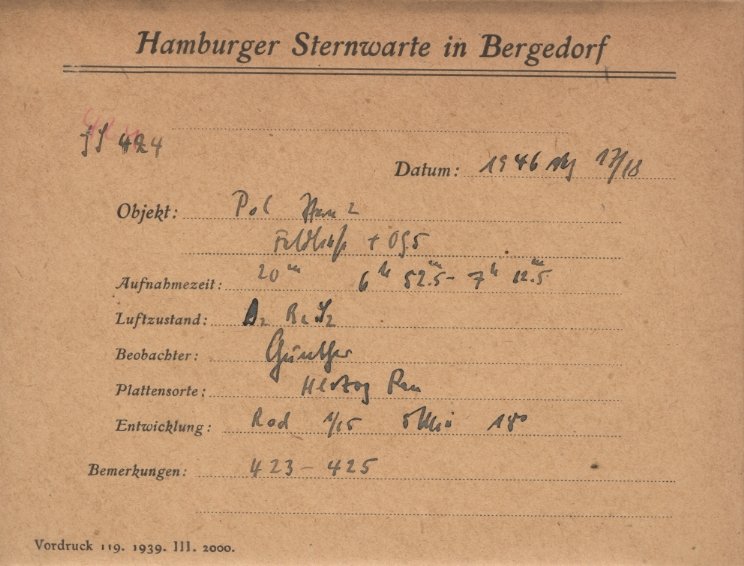 Hamburger Sternwarte in Bergedorf
424
Datum: 1946 17/18
Objekt: Pol
+ OG5
Aufnahmezeit: 20 m 6 h 52.5 m - 7 h 12.5 m
Luftzustand:
Beobachter: Günther
Plattensorte: Herzog Pan
Entwicklung: Rod 1/15 5 Min 18°
Bemerkungen: 423 - 425
Vordruck 119. 1939. III. 2000.